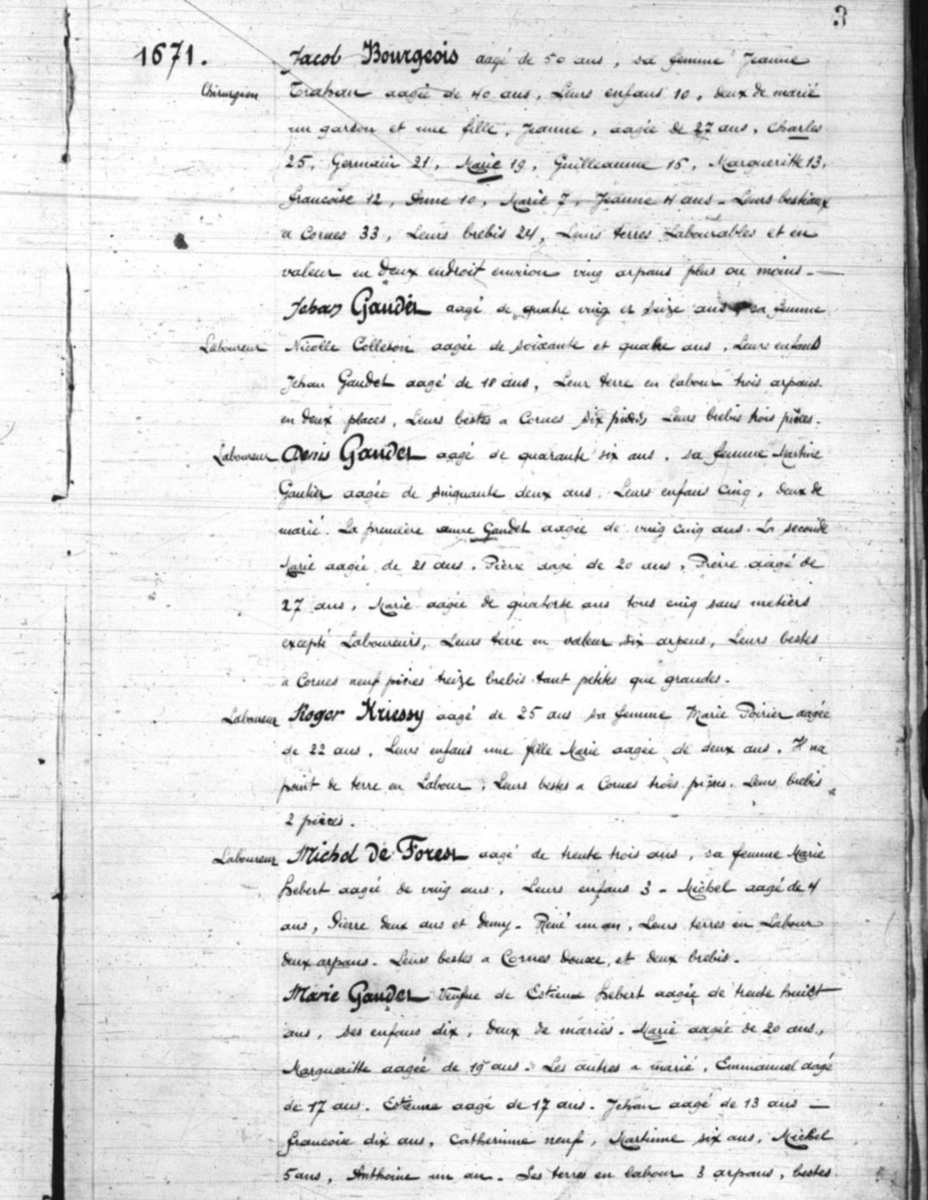 3
1671.
Jacob Bourgeois aagé de 50 ans, sa femme Jeanne
Chirurgien Trahan aagée de 40 ans, Leurs enfans 10, deux de marié
un garson et une fille, Jeanne, aagée de 27 ans, Charles
25, Germain 21, Marie 19, Guilleaume 15, Margueritte 13,
francoise 12, Anne 10, Marie 7, Jeanne 4 ans - Leurs bestiaux
a Cornes 33, Leurs brebis 24, Leurs terres Labourables et en
valeur en deux endroit environ ving arpans plus ou moins. —
Jehan Gaudet aagé de quatre ving et seize ans sa femme
Laboureur Nicolle Colleson aagée de soixante et quatre ans, Leurs enfans
Jehan Gaudet aagé de 18 ans, Leur terre en labour trois arpans.
en deux places, Leurs bestes a Cornes six pieces, Leurs brebis trois pièces.
Laboureur Denis Gaudet aagé de quarante six ans, sa femme Martine
Gautier aagée de sinquante deux ans. Leurs enfans cinq, deux de
marié. La première anne Gaudet aagée de ving cinq ans. La seconde
Marie aagée de 21 ans. Pierre aagé de 20 ans, Pierre aagé de
27 ans, Marie aagée de quatorse ans tous cinq sans metiers
excepté Laboureurs, Leurs terre en valeur six arpens, Leurs bestes
a Cornes neuf pièces treize brebis tant petites que grandes.
Laboureur Roger Kriessy aagé de 25 ans sa femme Marie Poirier aagée
de 22 ans, Leurs enfans une fille Marie aagée de deux ans. Il na
point de terre en Labour, Leurs bestes a Cornes trois pièces. Leurs brebis
2 pièces.
Laboureur Michel de Forest aagé de trente trois ans, sa femme Marie
hebert aagée de ving ans, Leurs enfans 3 - Michel aagé de 4
ans, Pierre deux ans et demy - René un an, Leurs terres en Labour
deux arpans. Leurs bestes a Cornes douxe, et deux brebis.
Marie Gaudet Veufve de Estienne hebert aagée de trente huict
ans, Ses enfans dix, deux de mariés - Marie aagée de 20 ans,
Margueritte aagée de 19 ans. Les autres a marié, Emmanuel aagé
de 17 ans. Estienne aagé de 17 ans. Jehan aagé de 13 ans —
francoise dix ans, Catherinne neuf, Martinne six ans, Michel
5 ans, Anthoine un an. Ses terres en labour 3 arpans, bestes